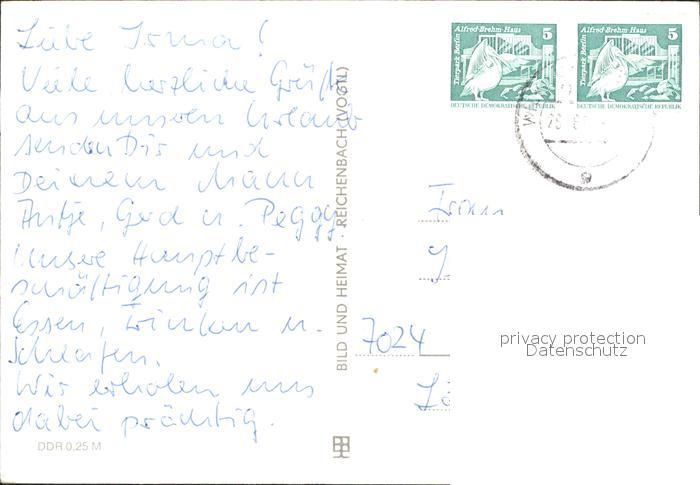 Liebe Irma!
Viele herzliche Grüße
aus unserem Urlaub
senden Dir und
Deinem Mann
Antje, Gerd u. Peggy
Unsere Hauptbe-
schäftigung ist
Essen, Trinken u.
Schlafen.
Wir erholen uns
dabei prächtig.
DDR 0,25 M
BILD UND HEIMAT · REICHENBACH (VOGTL)
Alfred-Brehm-Haus 5
Tierpark Berlin
DEUTSCHE DEMOKRATISCHE REPUBLIK
Alfred-Brehm-Haus 5
Tierpark Berlin
DEUTSCHE DEMOKRATISCHE REPUBLIK
Frau
7024
privacy protection
Datenschutz